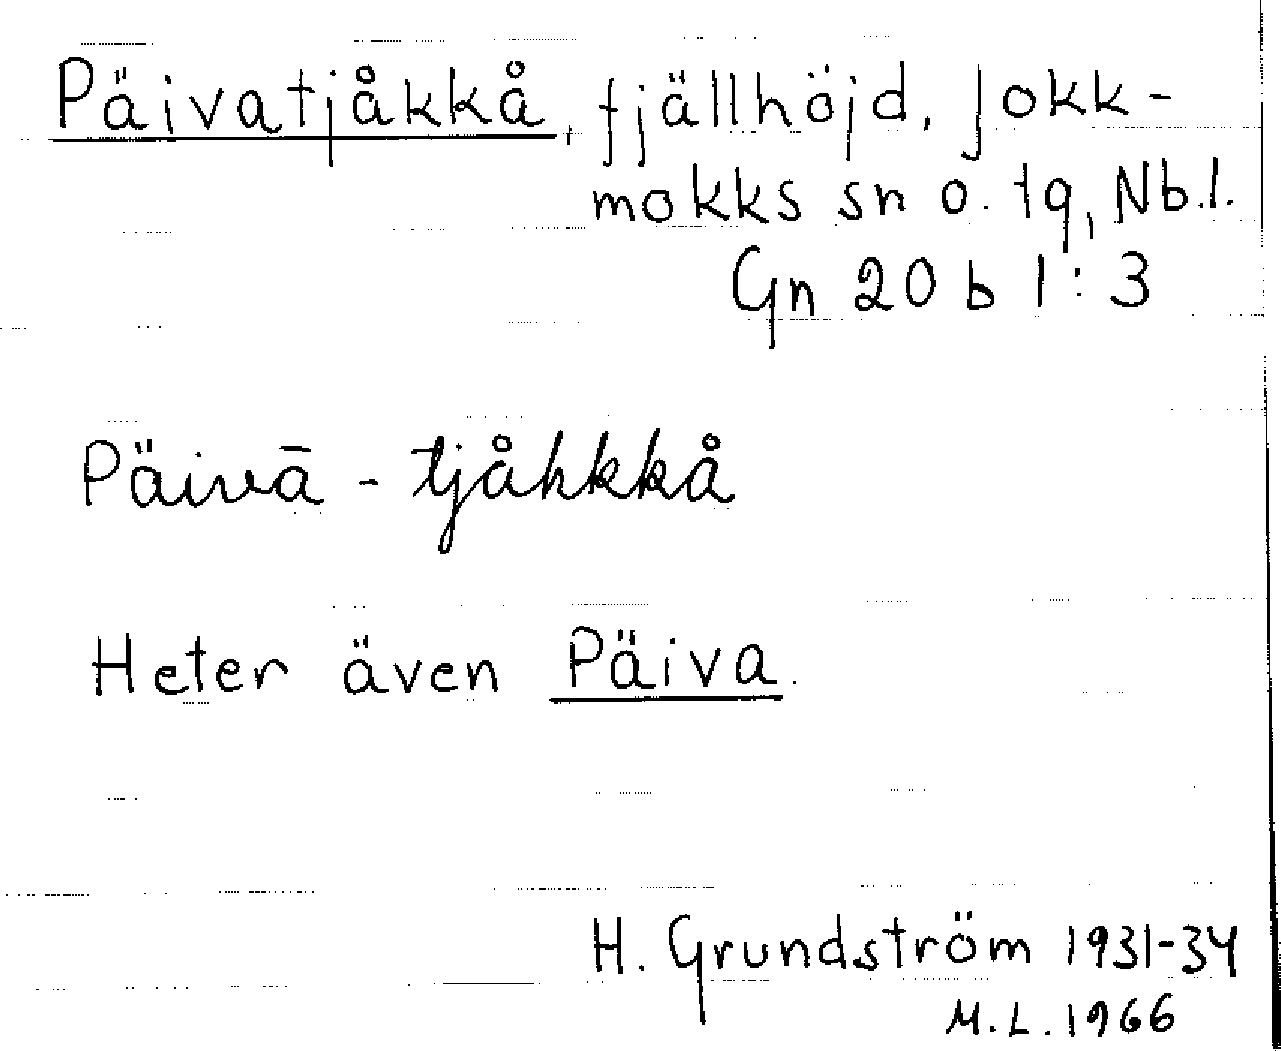 Päivatjåkkå, fjällhöjd, Jokk-
mokks sn o. tg, Nb.l.
Gn 20 b 1:3
Päivā - tjåhkkå
Heter även Päiva.
H. Grundström 1931-34
M.L. 1966